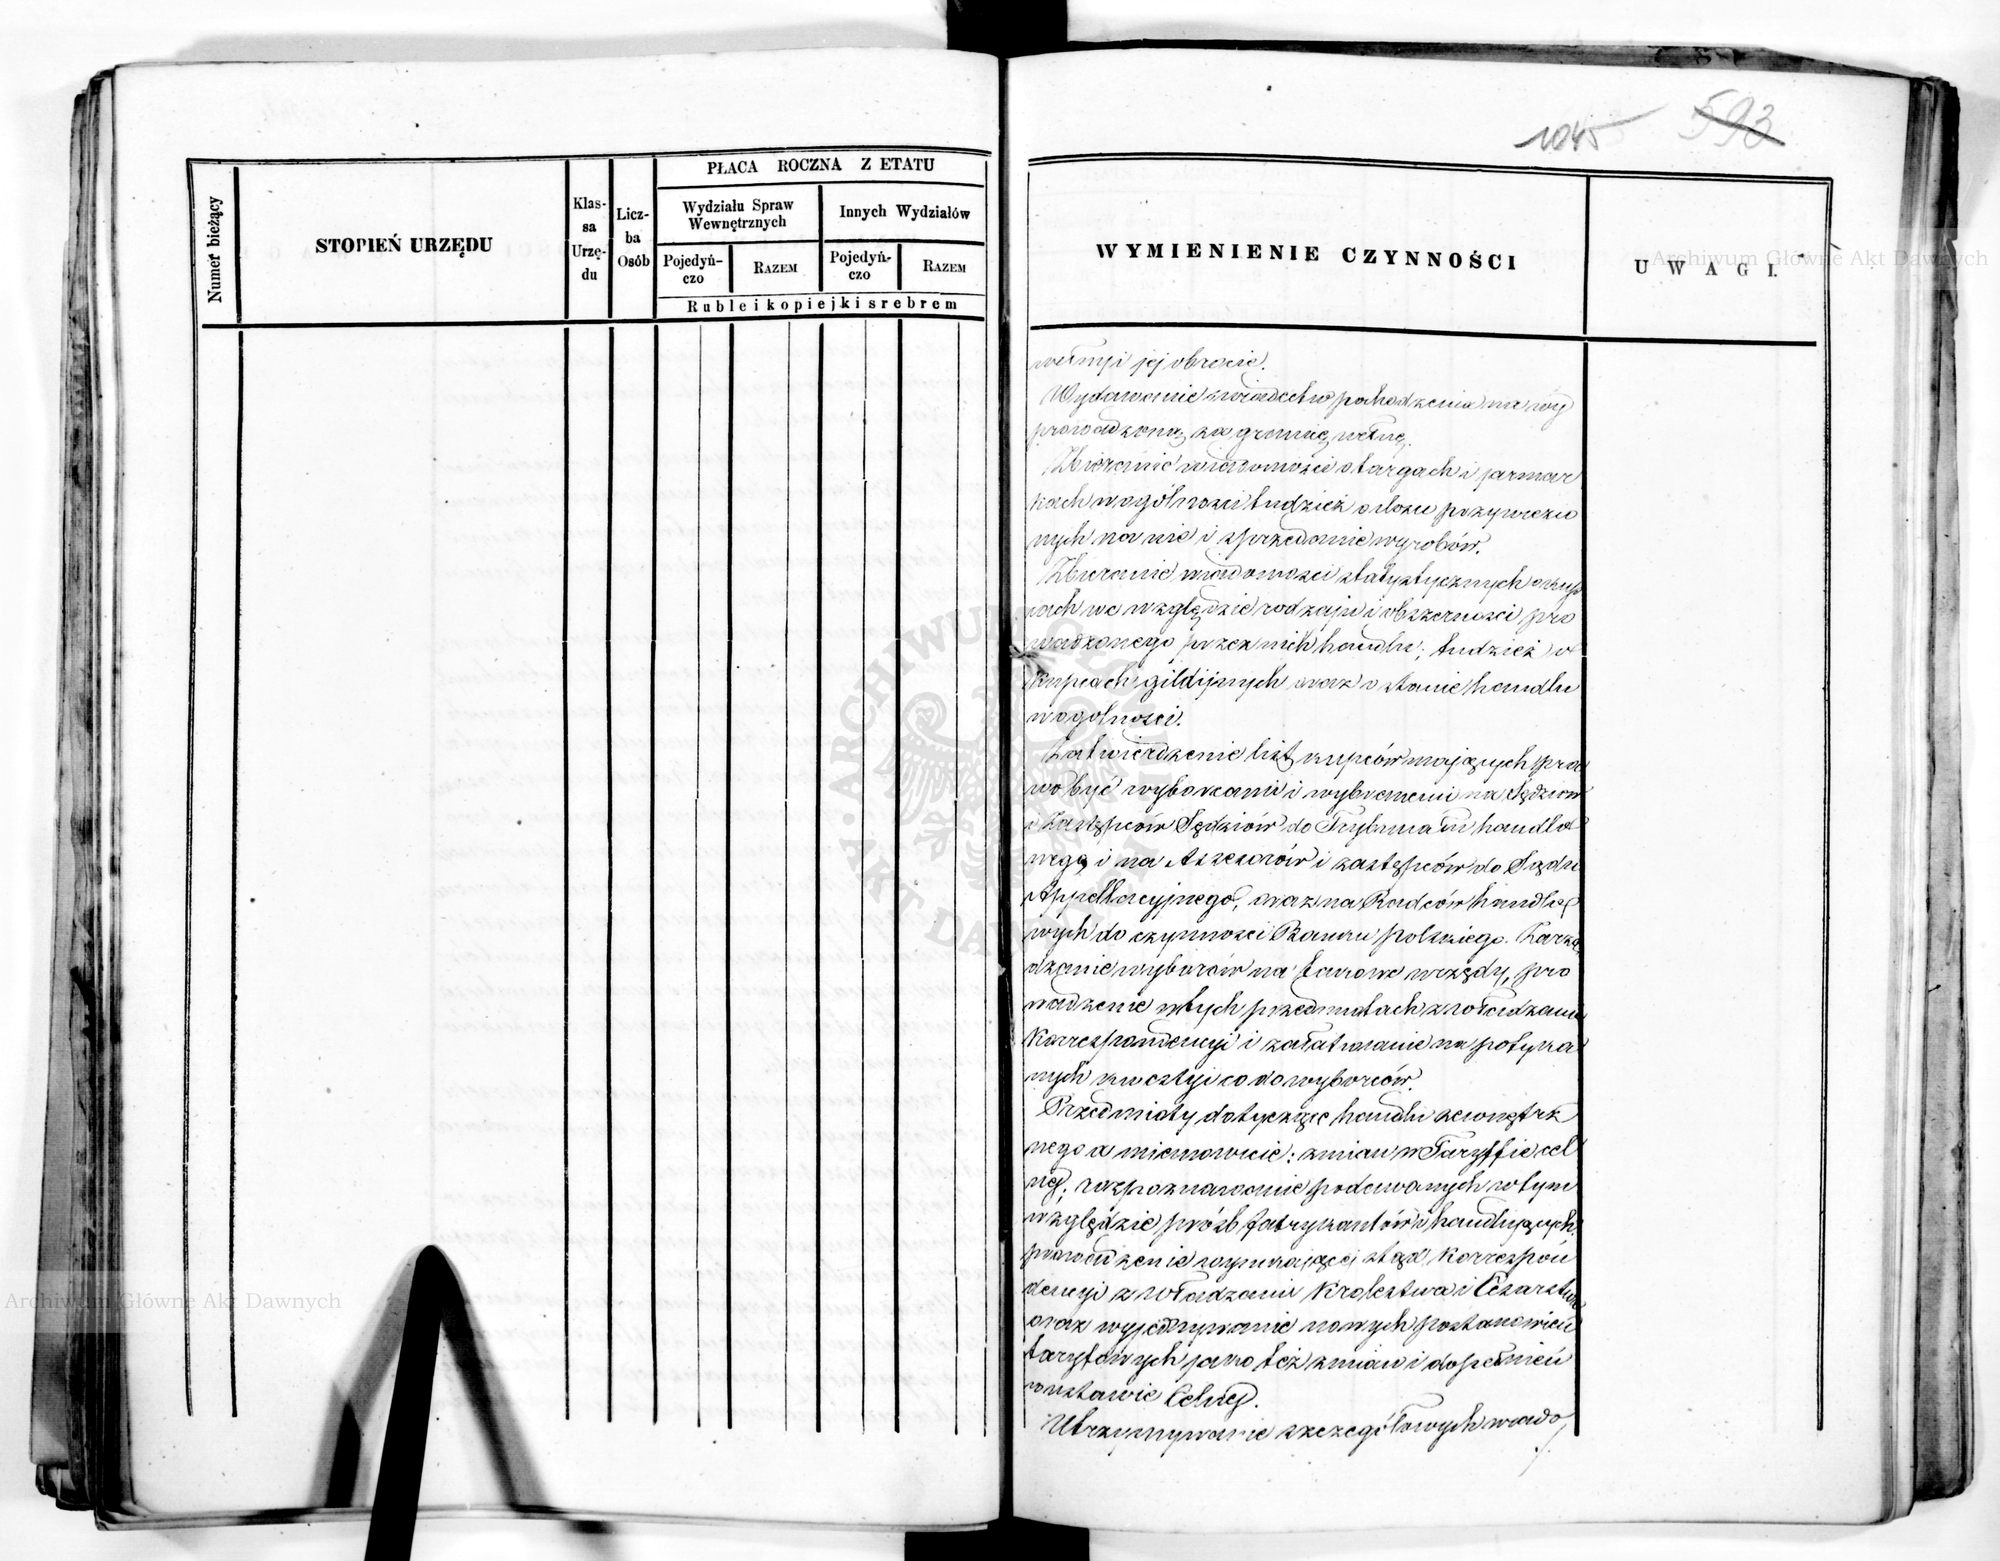 Numer bieżący
STOPIEŃ URZĘDU
Klas-
sa
Urzę-
du
Licz-
ba
Osób
PŁACA ROCZNA Z ETATU
Wydziału Spraw
Wewnętrznych
Innych Wydziałów
Pojedyń-
czo
RAZEM
Pojedyń-
czo
RAZEM
Ruble i kopiejki srebrem
1045
593
WYMIENIENIE CZYNNOŚCI
UWAGI.
wełny i jej obrocie.
Wydawanie swiadectw pochodzenia na wy
prowadzoną za granicę wełnę.
Zbieranie wiadomości o targach i jarmar
kach w ogólności tudzież o ilości przywiezio
nych na nie i sprzedanie wyrobów.
Zbieranie wiadomości statystycznych o kup
cach we względzie rodzaju i obszerności pro
wadzonego przez nich handlu; tudzież o
kupcach gildijnych oraz o stanie handlu
w ogólności.
Zatwierdzenie list kupców mających pra
wo być wyborcami i wybranemi na Sędziów
i Zastępców Sędziów do Trybunału handlo
wego i na Assessorów i zastępców do Sądu
Appellacyjnego, oraz na Radców handlo
wych do czynności Banku Polskiego. Zarzą
dzanie wyborów na takowe urzędy, pro
wadzenie w tych przedmiotach z władzami
Korrespondencyi i załatwianie napotyka
nych kwestyi co do wyborców.
Przedmioty dotyczące handlu zewnętrz
nego a mianowicie: zmian w Taryffie cel
nej; rozpoznawanie podawanych w tym
względzie próśb fabrykantów i handlujących;
prowadzenie wynikającej ztąd Korrespon
dencyi z władzami Królestwa i Cesarstwa
oraz wyjednywanie nowych postanowień
taryfowych jako też zmian i dopełnień
w ustawie Celnej.
Utrzymywanie szczegółowych wiado
Archiwum Główne Akt Dawnych
Archiwum Główne Akt Dawnych
ARCHIWUM GŁÓWNE AKT DAWNYCH